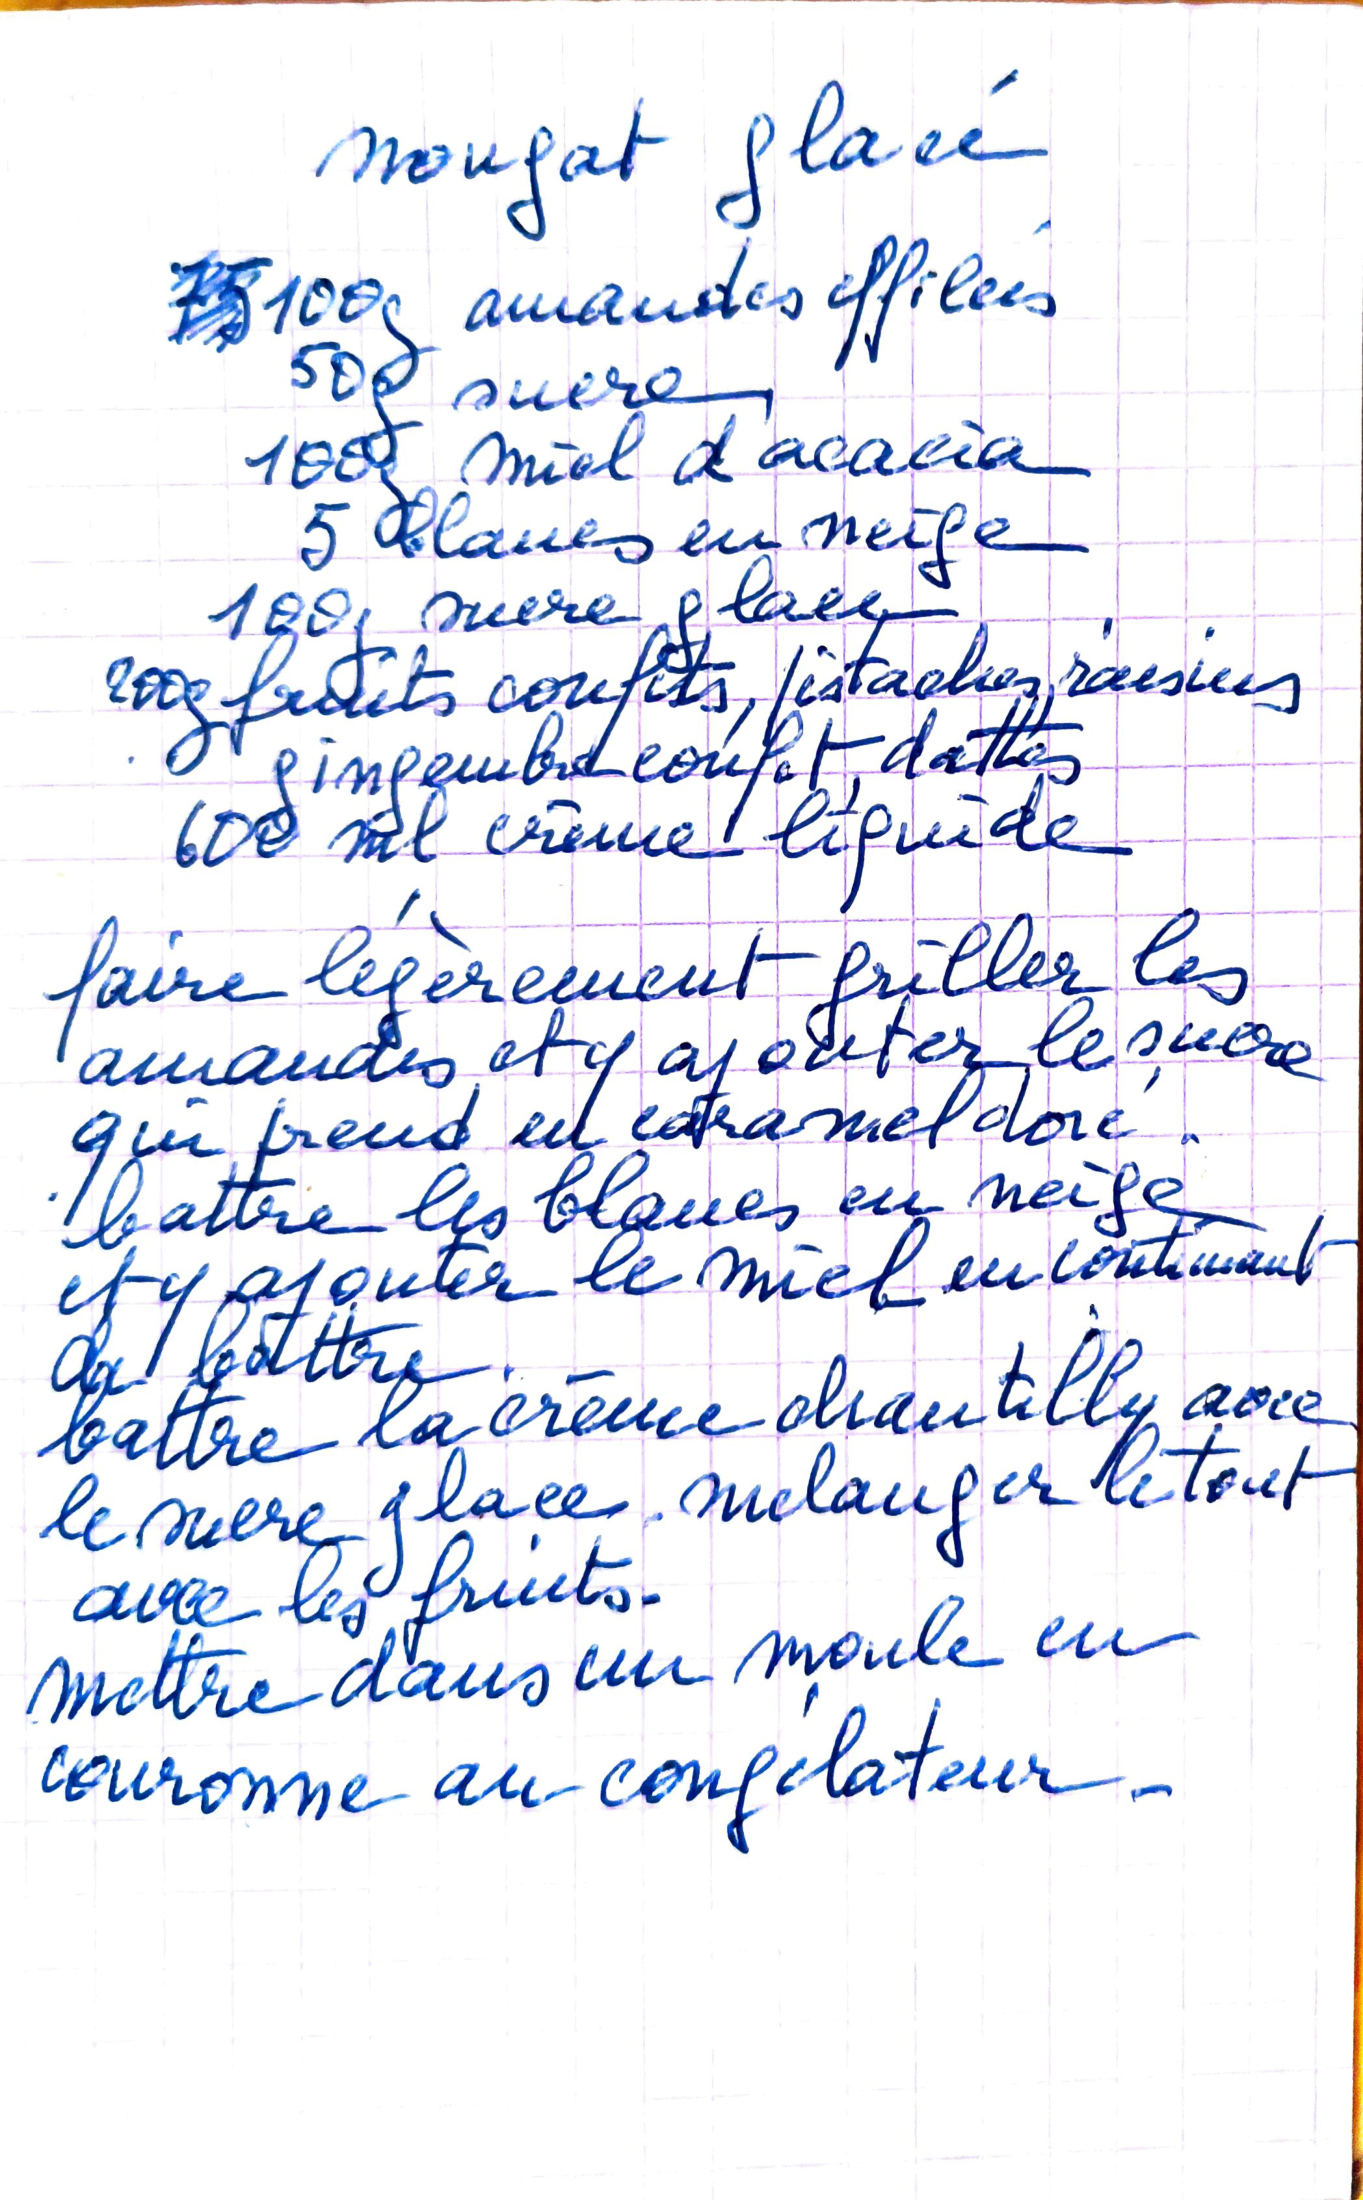 nougat glacé
100g amandes effilées
50g sucre
100g miel d'acacia
5 blancs en neige
100g sucre glace
200g fruits confits, pistaches, raisins
gingembre confit, dattes
600 ml crème liquide
faire légèrement griller les
amandes et y ajouter le sucre
qui prend en caramel doré.
battre les blancs en neige
et y ajouter le miel en continuant
de battre.
battre la crème chantilly avec
le sucre glace. mélanger le tout
avec les fruits.
mettre dans un moule en
couronne au congélateur.